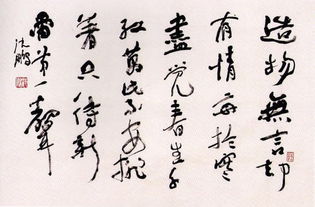 造物無言却
有情每於寒
盡覺春生千
紅萬紫安排
著只待新
雷第一聲
沈鵬